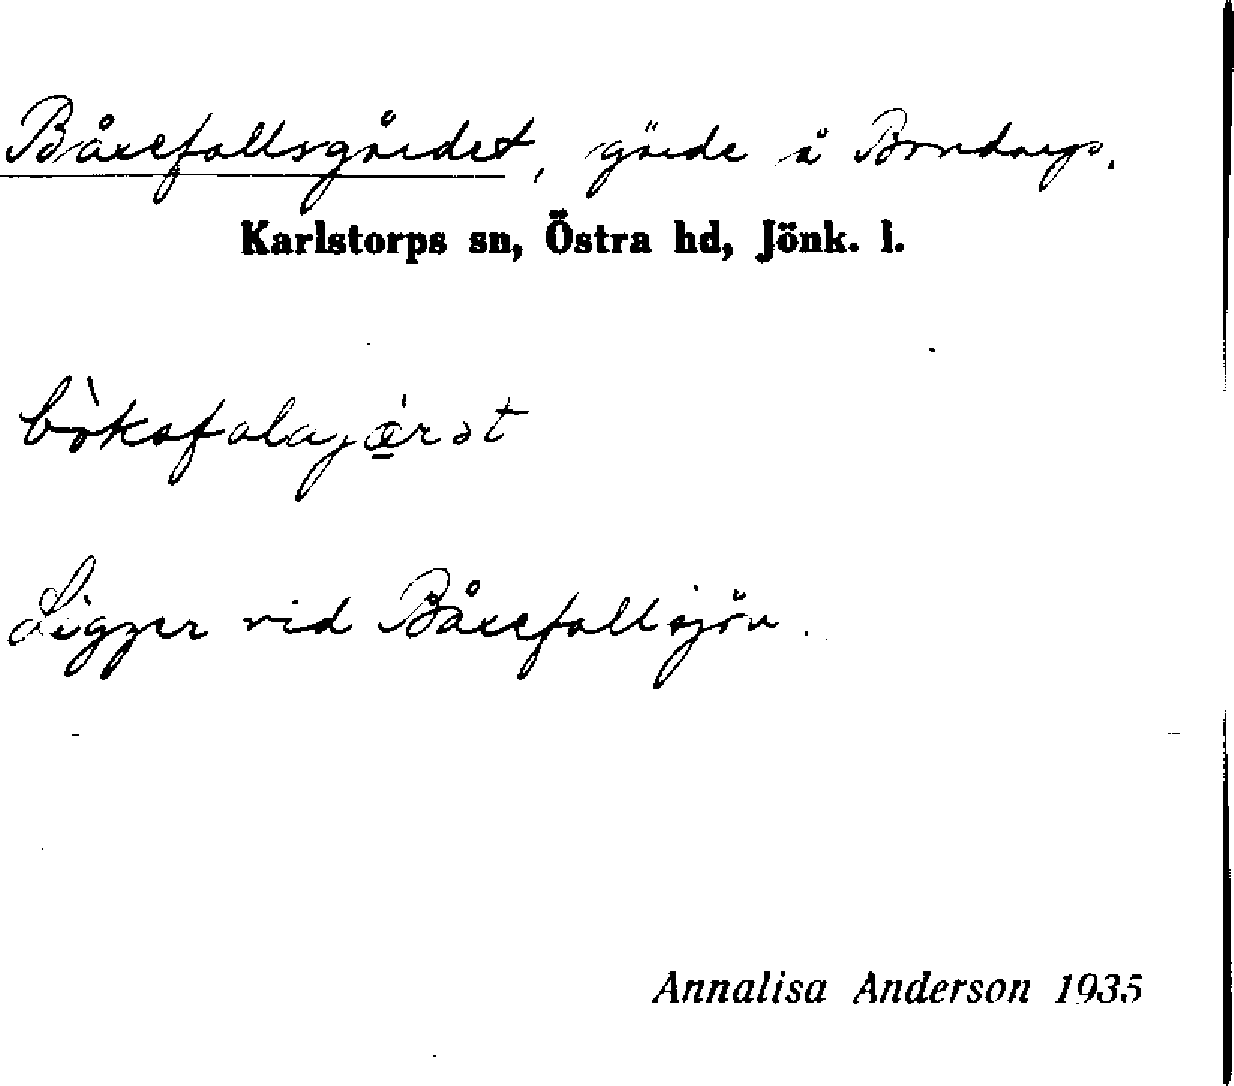 Båxefallsgärdet, gärde å Bondarp.
Karlstorps sn, Östra hd, Jönk. l.
Ligger vid Båxefallsjön.
Annalisa Anderson 1935